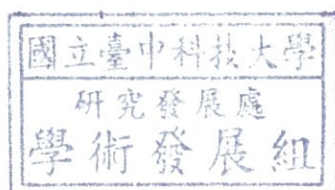 國立臺中科技大學
研究發展處
學術發展組